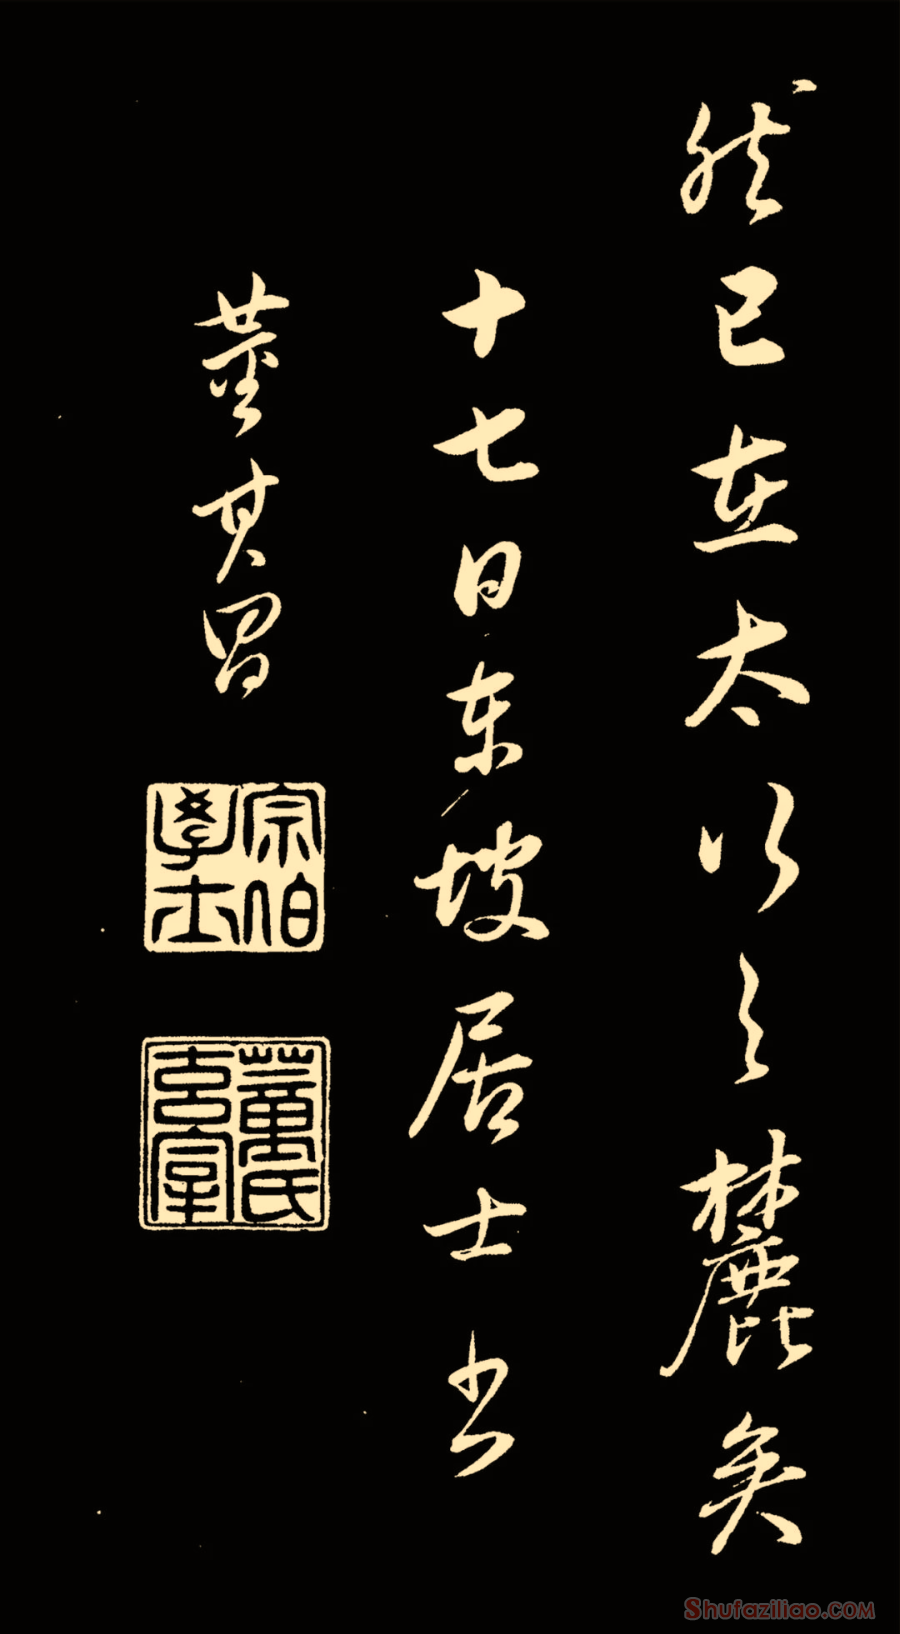 然已在太行之麓矣
十七日東坡居士書
董其昌
宗伯學士
董氏玄宰
Shufaziliao.COM